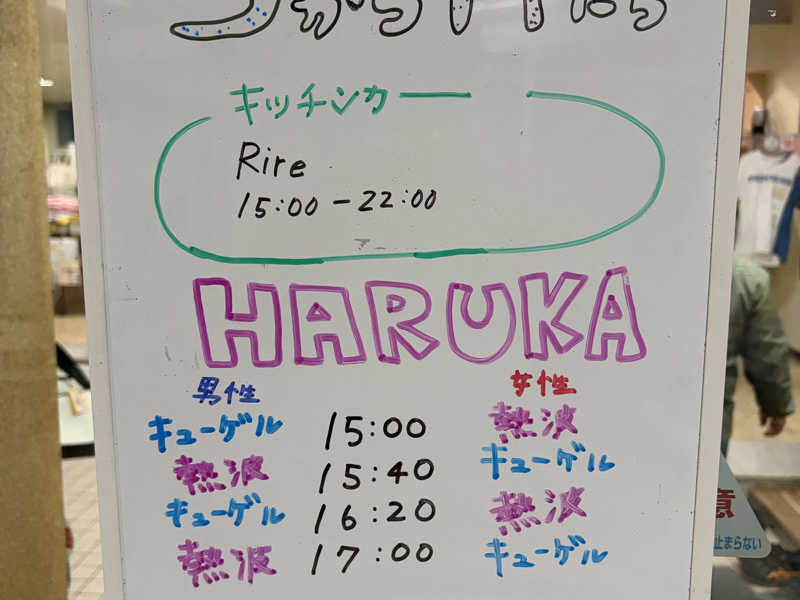 キッチンカー
Rire
15:00 - 22:00
HARUKA
男性 女性
キューゲル 15:00 熱波
熱波 15:40 キューゲル
キューゲル 16:20 熱波
熱波 17:00 キューゲル
意
止まらない